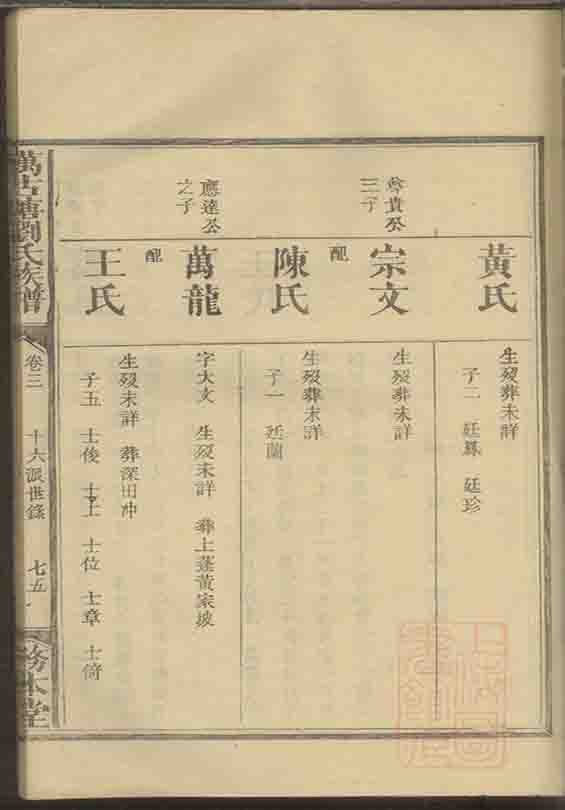 黃氏
生歿葬未詳
子二 廷鳳 廷珍
尊貴公
三子
宗文
生歿葬未詳
配
陳氏
生歿葬未詳
子一 廷蘭
應達公
之子
萬龍
字大文 生歿未詳 葬上蓬黃家坡
配
王氏
生歿未詳 葬深田冲
子五 士俊 士上 士位 士章 士倚
萬古塘劉氏族譜
卷三 十六派世錄 七五
務本堂